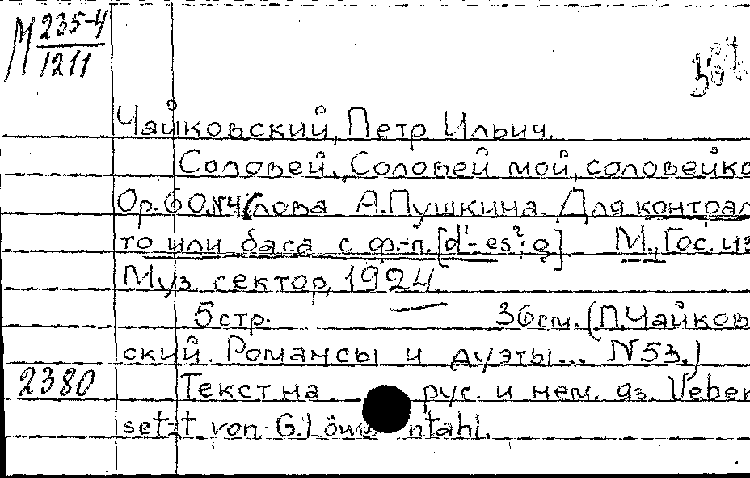 М 235-4
1211
Чайковский, Петр Ильич.
Соловей. „Соловей мой, соловейко
Ор. 60 №4 Слова А. Пушкина. Для контраль
то или баса с ф-п. [d¹-es²; e] М., Гос. из
Муз. сектор, 1924.
5 стр. 36 см. (П. Чайков
ский. Романсы и дуэты... N 53.)
2380 Текст на рус. и нем. яз. Ueber
setzt von G.